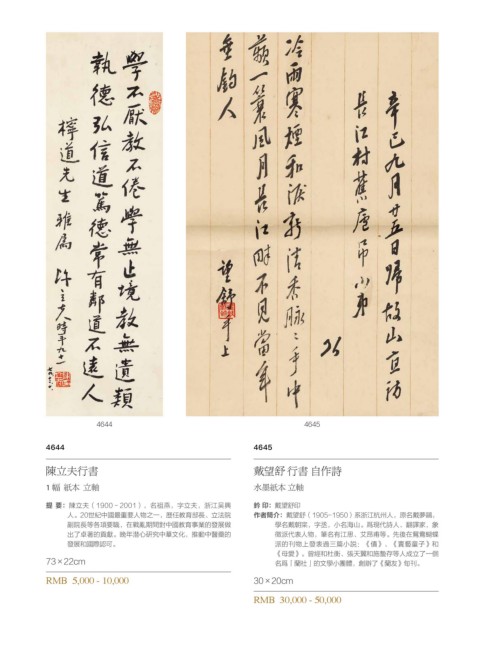 學不厭教不倦學無止境教無遺類
執德弘信道篤德常有鄰道不遠人
道先生雅屬
陳立夫時年九十一
辛巳九月廿五日歸故山
長江村蕉廬吊小弟
冷雨寒煙和淚新清香脉々手中
一簑風月長江畔不見當年
垂釣人
望舒手上
4644
4645
4644
陳立夫行書
1 幅 紙本 立軸
提 要：陳立夫（1900－2001），名祖燕，字立夫，浙江吳興
人。20世紀中國最重要人物之一，歷任教育部長、立法院
副院長等各項要職，在戰亂期間對中國教育事業的發展做
出了卓著的貢獻。晚年潛心研究中華文化，推動中醫藥的
發展和國際認可。
73×22cm
RMB 5,000 - 10,000
4645
戴望舒 行書 自作詩
水墨紙本 立軸
鈐 印：戴望舒印
作者簡介：戴望舒（1905－1950）系浙江杭州人，原名戴夢鷗，
學名戴朝寀，字丞，小名海山。爲現代詩人、翻譯家、象
徵派代表人物，筆名有江思、艾昂甫等。先後在鴛鴦蝴蝶
派的刊物上發表過三篇小說：《債》、《賣藝童子》和
《母愛》。曾經和杜衡、張天翼和施蟄存等人成立了一個
名爲「蘭社」的文學小團體，創辦了《蘭友》旬刊。
30×20cm
RMB 30,000 - 50,000